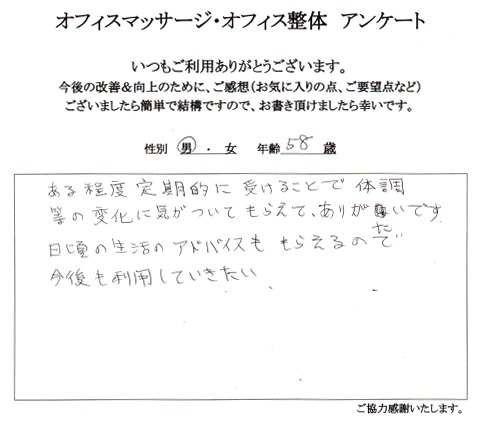 オフィスマッサージ・オフィス整体 アンケート
いつもご利用ありがとうございます。
今後の改善&向上のために、ご感想(お気に入りの点、ご要望点など)
ございましたら簡単で結構ですので、お書き頂けましたら幸いです。
性別 男 ・ 女 年齢 58 歳
ある程度定期的に受けることで体調
等の変化に気がついてもらえて、ありがたいです
日頃の生活のアドバイスももらえるので
今後も利用していきたい
ご協力感謝いたします。